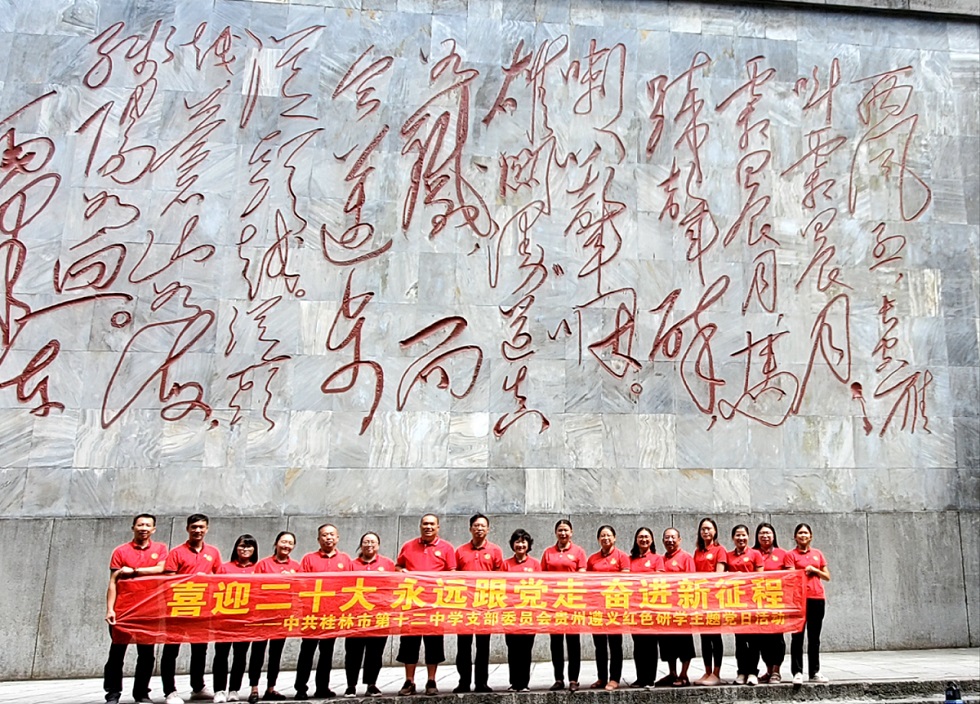 西風烈 長空雁
叫霜晨月。
霜晨月 馬
蹄聲碎
喇叭聲咽。
雄關漫道真
如鐵 而
今邁步
從頭越。從頭
越 蒼山如海
殘陽如血。
喜迎二十大 永远跟党走 奋进新征程
——中共桂林市第十二中学支部委员会贵州遵义红色研学主题党日活动